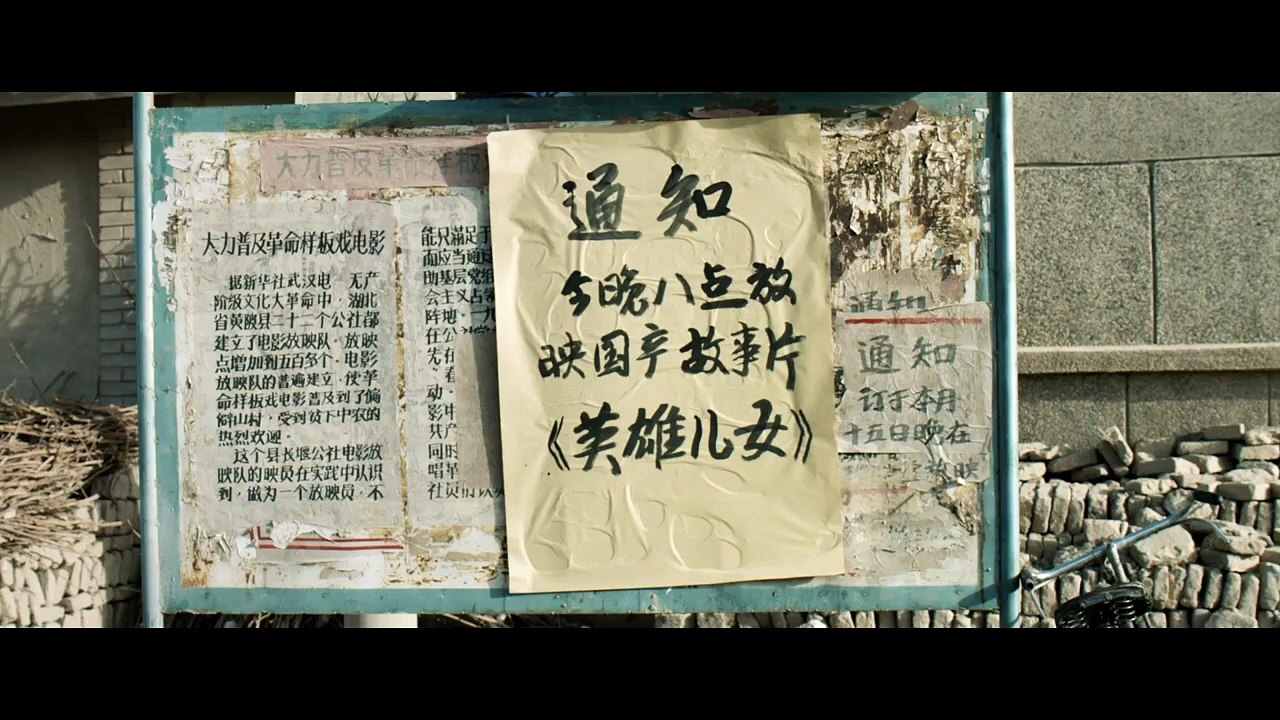 大力普及革命样板
大力普及革命样板戏电影
据新华社武汉电，无产
阶级文化大革命中，湖北
省黄陂县二十二个公社都
建立了电影放映队，放映
点增加到五百多个，电影
放映队的普遍建立，使革
命样板戏电影普及到了偏
僻山村，受到贫下中农的
热烈欢迎。
这个县长堰公社电影放
映队的映员在实践中认识
到，做为一个放映员，不
能只满足于
面应当通过
助基层党组
会主义占领
阵地。一九
在公社党
先在
看
动。
影中
共产
同时
唱革
社员们认真
通知
今晚八点放
映国产故事片
《英雄儿女》
通知
通知
订于本月
十五日晚在
放映